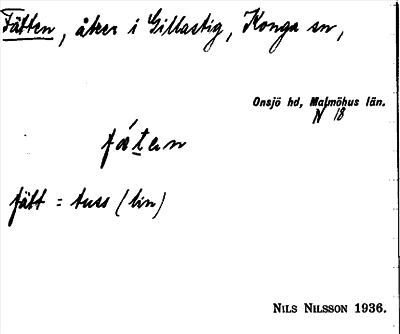 Fätten, åker i Gillastig, Konga sn,
Onsjö hd, Malmöhus län.
N 18
fáten
fätt = tuss (lin)
NILS NILSSON 1936.